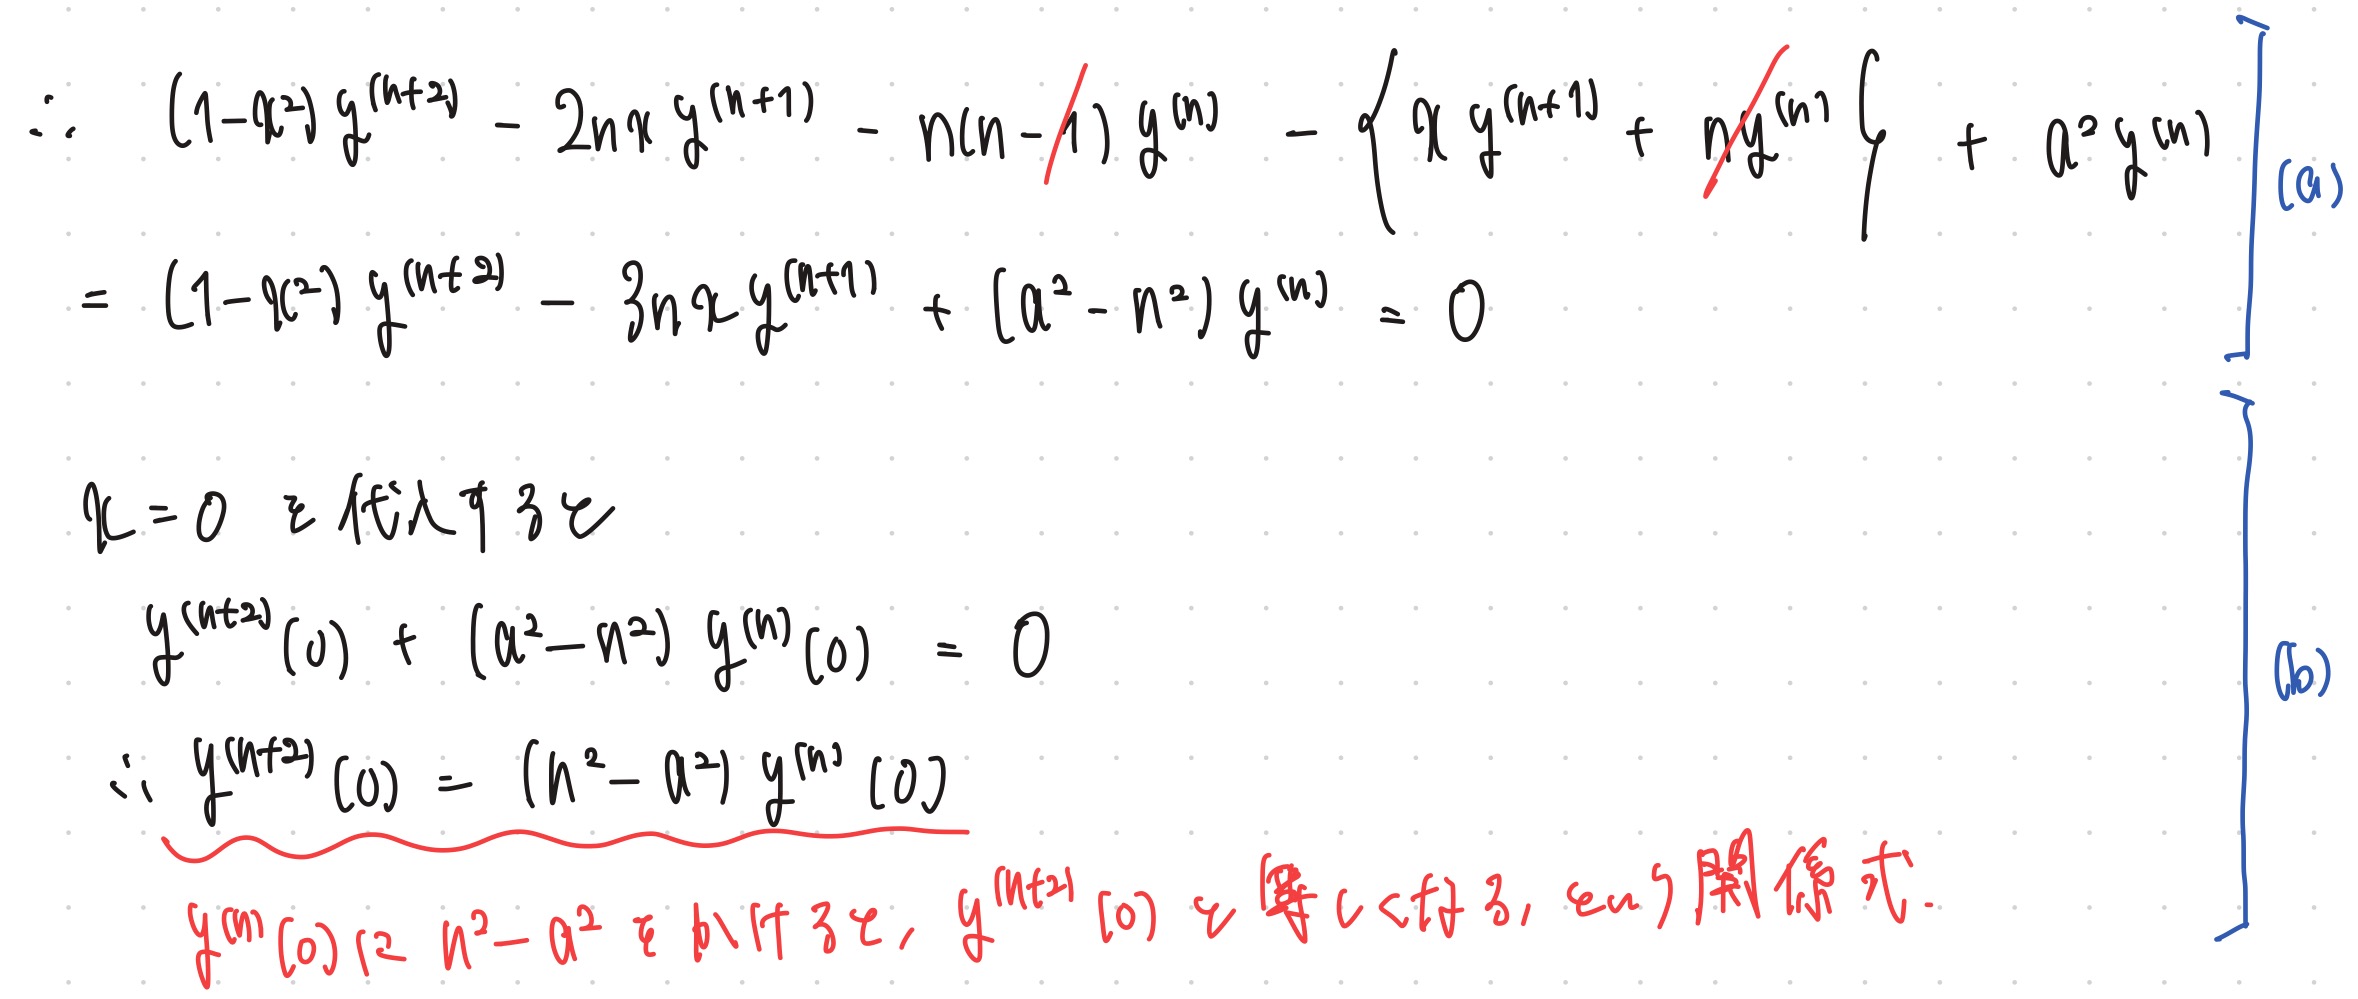 ∴ (1-x²) y⁽ⁿ⁺²⁾ - 2nx y⁽ⁿ⁺¹⁾ - n(n-1) y⁽ⁿ⁾ - { x y⁽ⁿ⁺¹⁾ + ny⁽ⁿ⁾ } + a² y⁽ⁿ⁾
(a)
= (1-x²) y⁽ⁿ⁺²⁾ - 3nx y⁽ⁿ⁺¹⁾ + (a² - n²) y⁽ⁿ⁾ = 0
x=0 を代入すると
y⁽ⁿ⁺²⁾(0) + (a²-n²) y⁽ⁿ⁾(0) = 0
(b)
∴ y⁽ⁿ⁺²⁾(0) = (n²-a²) y⁽ⁿ⁾(0)
y⁽ⁿ⁾(0)に n²-a² をかけると、y⁽ⁿ⁺²⁾(0)と等しくなる,という関係式.